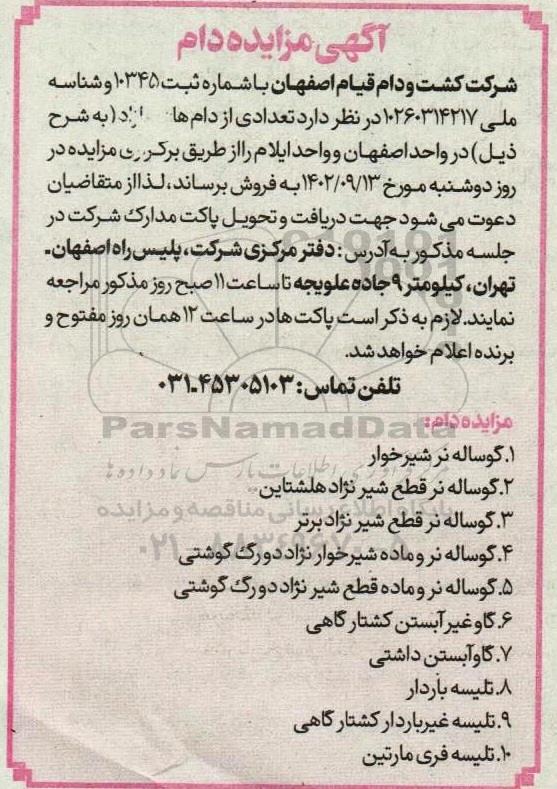 آگهی مزایده دام
شرکت کشت و دام قیام اصفهان با شماره ثبت ۱۰۳۴۵ و شناسه
ملی ۱۰۲۶۰۳۱۴۲۱۷ در نظر دارد تعدادی از دام ها (به شرح
ذیل) در واحد اصفهان و واحد ایلام را از طریق مزایده در
روز دوشنبه مورخ ۱۴۰۲/۰۹/۱۳ به فروش برساند، لذا از متقاضیان
دعوت می شود جهت دریافت و تحویل پاکت مدارک شرکت در
جلسه مذکور به آدرس: دفتر مرکزی شرکت، پلیس راه اصفهان-
تهران، کیلومتر ۹ جاده علویجه تا ساعت ۱۱ صبح روز مذکور مراجعه
نمایند. لازم به ذکر است پاکت ها در ساعت ۱۲ همان روز مفتوح و
برنده اعلام خواهد شد.
تلفن تماس: ۴۵۳۰۵۱۰۳-۰۳۱
ParsNamadData
مزایده دام:
۱. گوساله نر شیرخوار
۲. گوساله نر قطع شیر نژاد هلشتاین
۳. گوساله نر قطع شیر نژاد برتر
پایگاه اطلاع رسانی مناقصه و مزایده
۴. گوساله نر و ماده شیرخوار نژاد دورگ گوشتی
۵. گوساله نر و ماده قطع شیر نژاد دورگ گوشتی
۶. گاو غیر آبستن کشتارگاهی
۷. گاو آبستن داشتی
۸. تلیسه باردار
۹. تلیسه غیر باردار کشتارگاهی
۱۰. تلیسه فری مارتین